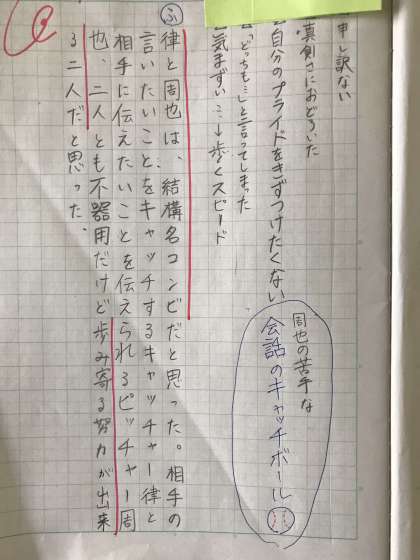 申し訳ない
真剣さにおどろいた
自分のプライドをきずつけたくない
「どっちも…」と言ってしまった
気まずい…→歩くスピード
周也の苦手な
会話のキャッチボール
ふ
律と周也は、結構名コンビだと思った。相手の
言いたいことをキャッチするキャッチャー律と
相手に伝えたいことを伝えられるピッチャー周
也、二人とも不器用だけど歩み寄る努力が出来
る二人だと思った。